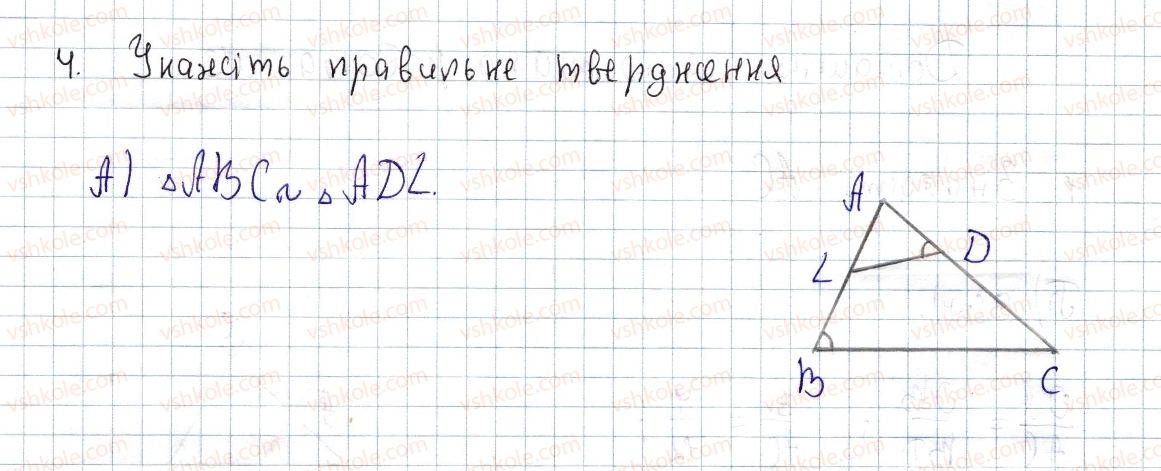 4. Укажіть правильне твердження
А) △ABC ~ △ADL.
A
L
D
B
C
vshkole.com